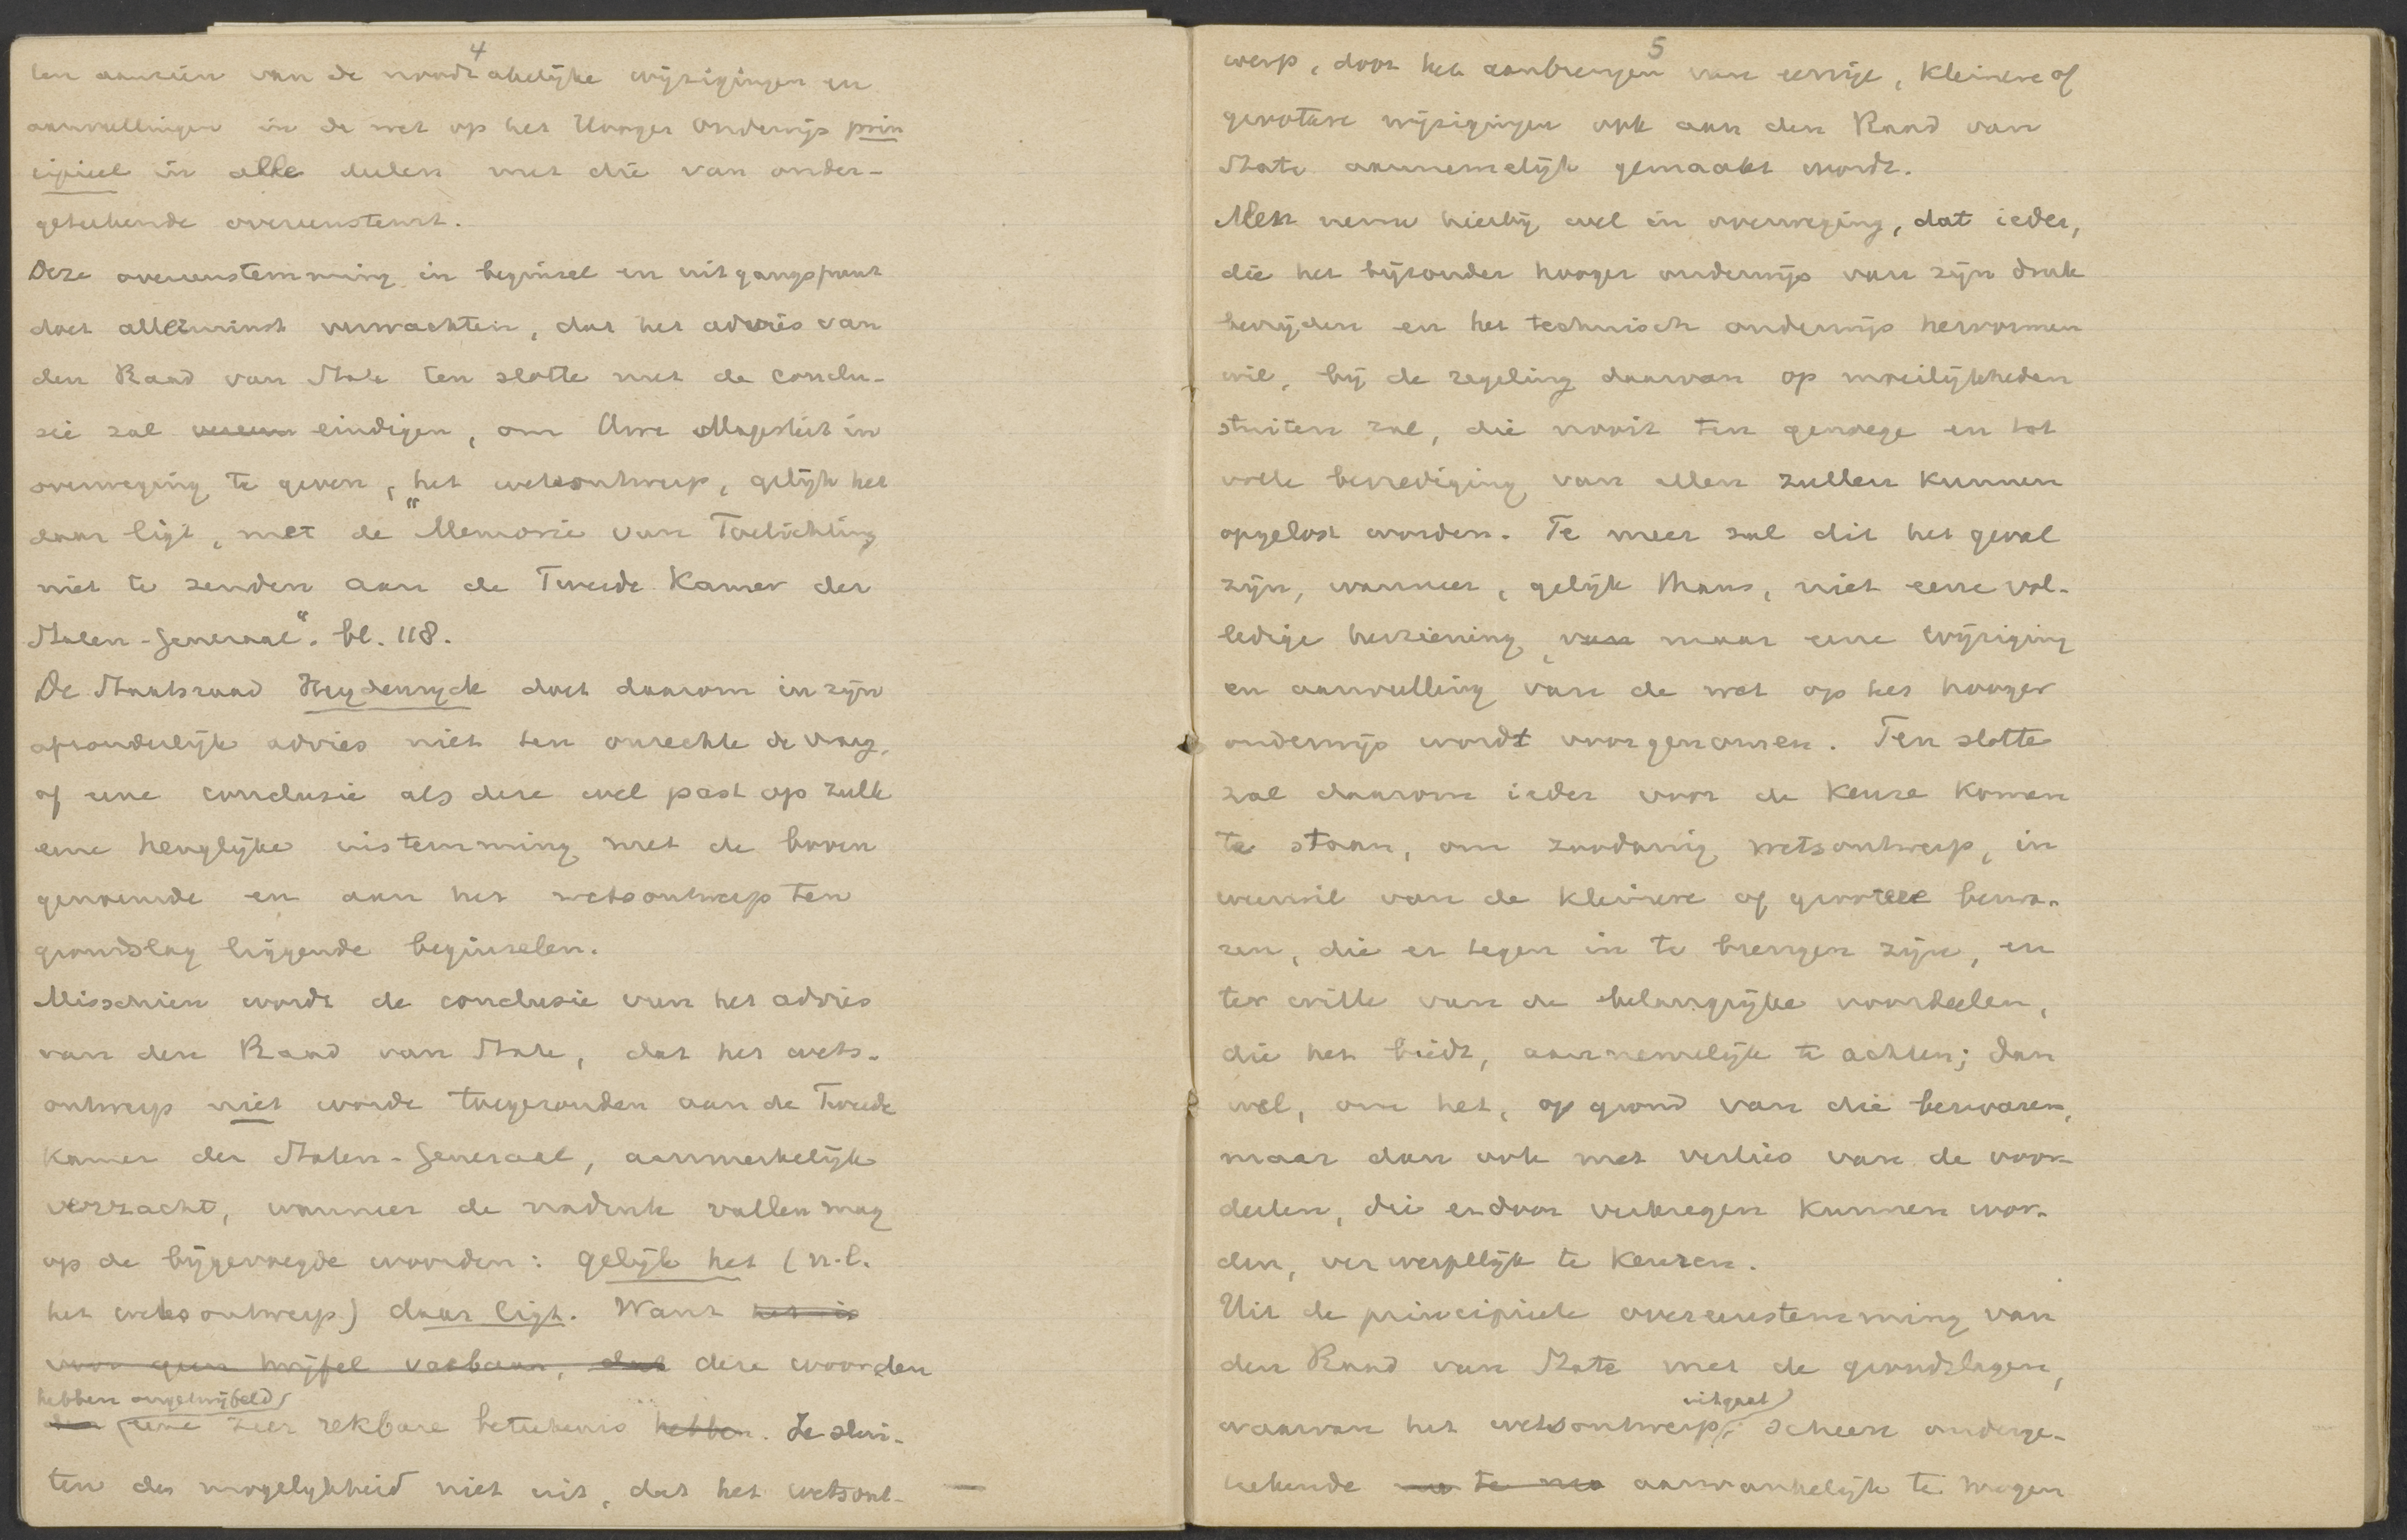 4
ten aanzien van de noodzakelijke wijzigingen en
aanvullingen in de wet op het Hooger Onderwijs prin
cipieel in alle deelen met die van onder-
geteekende overeenstemt.
Deze overeenstemming in beginsel en uitgangspunt
doet allerminst verwachten, dat het advies van
den Raad van State ten slotte met de conclu-
sie zal eindigen, om Uwe Majesteit in
overweging te geven, "het wetsontwerp, gelijk het
daar ligt, met de Memorie van Toelichting
niet te zenden aan de Tweede Kamer der
Staten-Generaal". bl. 118.
De Staatsraad Heydenryck doet daarom in zijn
afzonderlijk advies niet ten onrechte de vraag,
of eene conclusie als deze wel past op zulk
eene heuglijke instemming met de boven
genoemde en aan het wetsontwerp ten
grondslag liggende beginselen.
Misschien wordt de conclusie van het advies
van den Raad van State, dat het wets-
ontwerp niet worde toegezonden aan de Tweede
Kamer der Staten-Generaal, aanmerkelijk
verzacht, wanneer de nadruk vallen mag
op de bijgevoegde woorden: gelijk het (n.l.
het wetsontwerp) daar ligt. Want het is
voor geen twijfel vatbaar, dat deze woorden
hebben ongetwijfeld
eene zeer rekbare beteekenis hebben. Ze slui-
ten de mogelijkheid niet uit, dat het wetsont-
5
werp, door het aanbrengen van eenige, kleinere of
grootere wijzigingen ook aan den Raad van
State aannemelijk gemaakt wordt.
Men neme hierbij wel in overweging, dat ieder,
die het bijzonder hooger onderwijs van zijn druk
bevrijden en het technisch onderwijs hervormen
wil, bij de regeling daarvan op moeilijkheden
stuiten zal, die nooit ten genoege en tot
volle bevrediging van allen zullen kunnen
opgelost worden. Te meer zal dit het geval
zijn, wanneer, gelijk thans, niet eene vol-
ledige herziening, van maar eene wijziging
en aanvulling van de wet op het hooger
onderwijs wordt voorgenomen. Ten slotte
zal daarom ieder voor de keuze komen
te staan, om zoodanig wetsontwerp, in
weerwil van de kleinere of grootere bezwa-
ren, die er tegen in te brengen zijn, en
ter wille van de belangrijke voordeelen,
die het biedt, aannemelijk te achten; dan
wel, om het, op grond van die bezwaren,
maar dan ook met verlies van de voor-
deelen, die erdoor verkregen kunnen wor-
den, verwerpelijk te keuren.
Uit de principieele overeenstemming van
den Raad van State met de grondslagen,
uitgaat
waarvan het wetsontwerp, scheen onderge-
teekende aanvankelijk te mogen